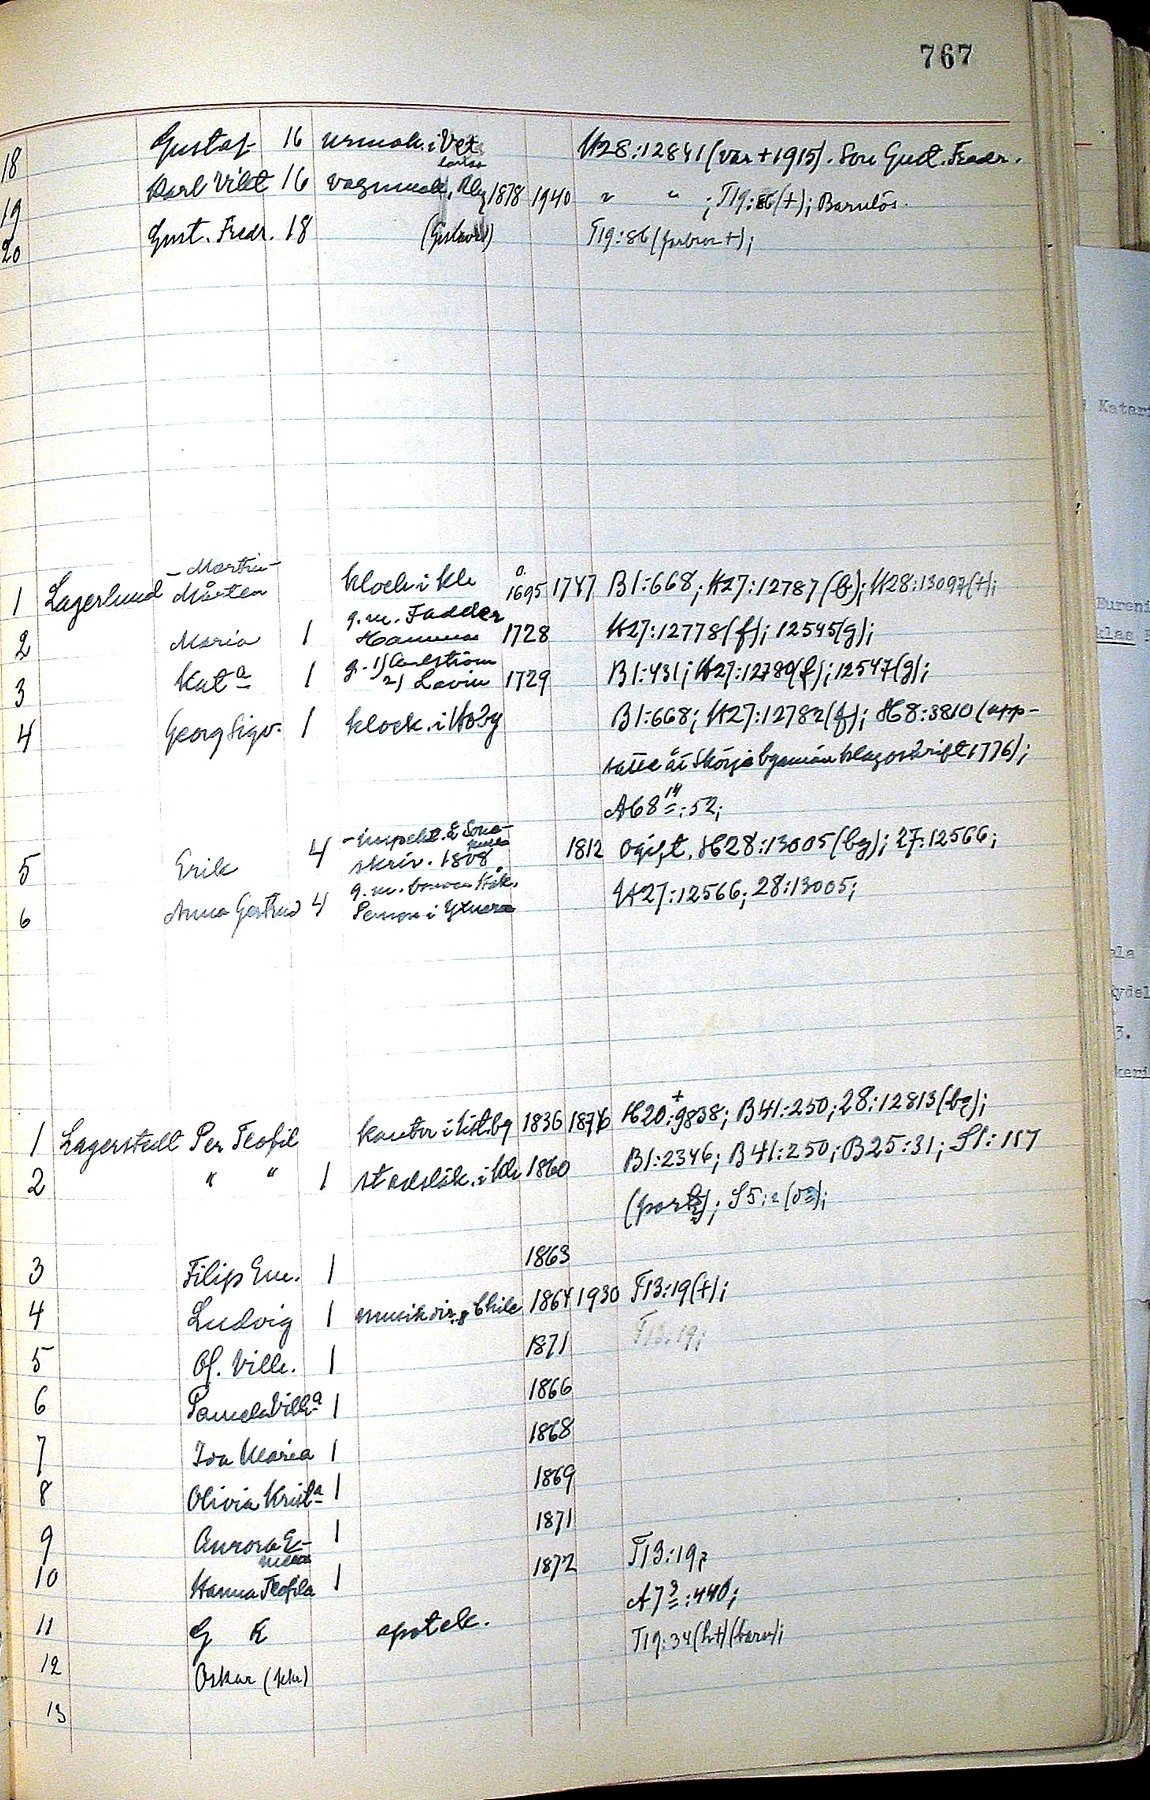 767
18 Gustaf 16 urmak. i Vet- landa H28:12841 (var +1915). Son Gust. Fredr.
19 Karl Vikt 16 vagnmak, Åby 1878 1940 " " ; T19:86 (+); Barnlös.
20 Gust. Fredr. 18 T19:86 (farbror +);
1 Lagerlund - Martin - Mårten klock. i Kla o. 1695 1747 B1:668; H27:12787 (b); H28:13097 (+);
2 Maria 1 g. m. Fadder Hammar 1728 H27:12778 (f); 12545 (g);
3 Kata 1 g. 1) Carlström 2) Lovin 1729 B1:431; H27:12780 (f); 12547 (g);
4 Georg Sigv. 1 klock. i Hoby B1:668; H27:12782 (f); H8:3810 (upp-
satte åt Skörje byamän klagoskrift 1776);
A68 14:52;
5 Erik 4 - inspekt. & skriv. 1808 1812 Ogift. H28:13005 (bg); 27:12566;
6 Anna Gertrud 4 g. m. i H27:12566; 28:13005;
1 Lagerstedt Per Teofil kantor i 1836 1876 H20:9838; + B41:250; 28:12813 (bg);
2 " " 1 stadsläk. i Kla 1860 B1:2346; B41:250; B25:31; S1:117
(portr); S5:2
3 Filip Em. 1 1863
4 Ludvig 1 musikdir. Chile 1864 1930 T13:19 (+);
5 Of. Vilh. 1 1871 T13:19;
6 Pamela Vilha 1 1866
7 Ida Maria 1 1868
8 Olivia Krista 1 1869
9 Aurora E- 1 1871
10 Hanna Teofila 1 1872 T13:19;
11 G E apotek. A7 3:440;
12 Oskar (kkr) T19:34 (h+) (barn);
13
Katar
Eureni
klas
ala
ydel
3.
keri